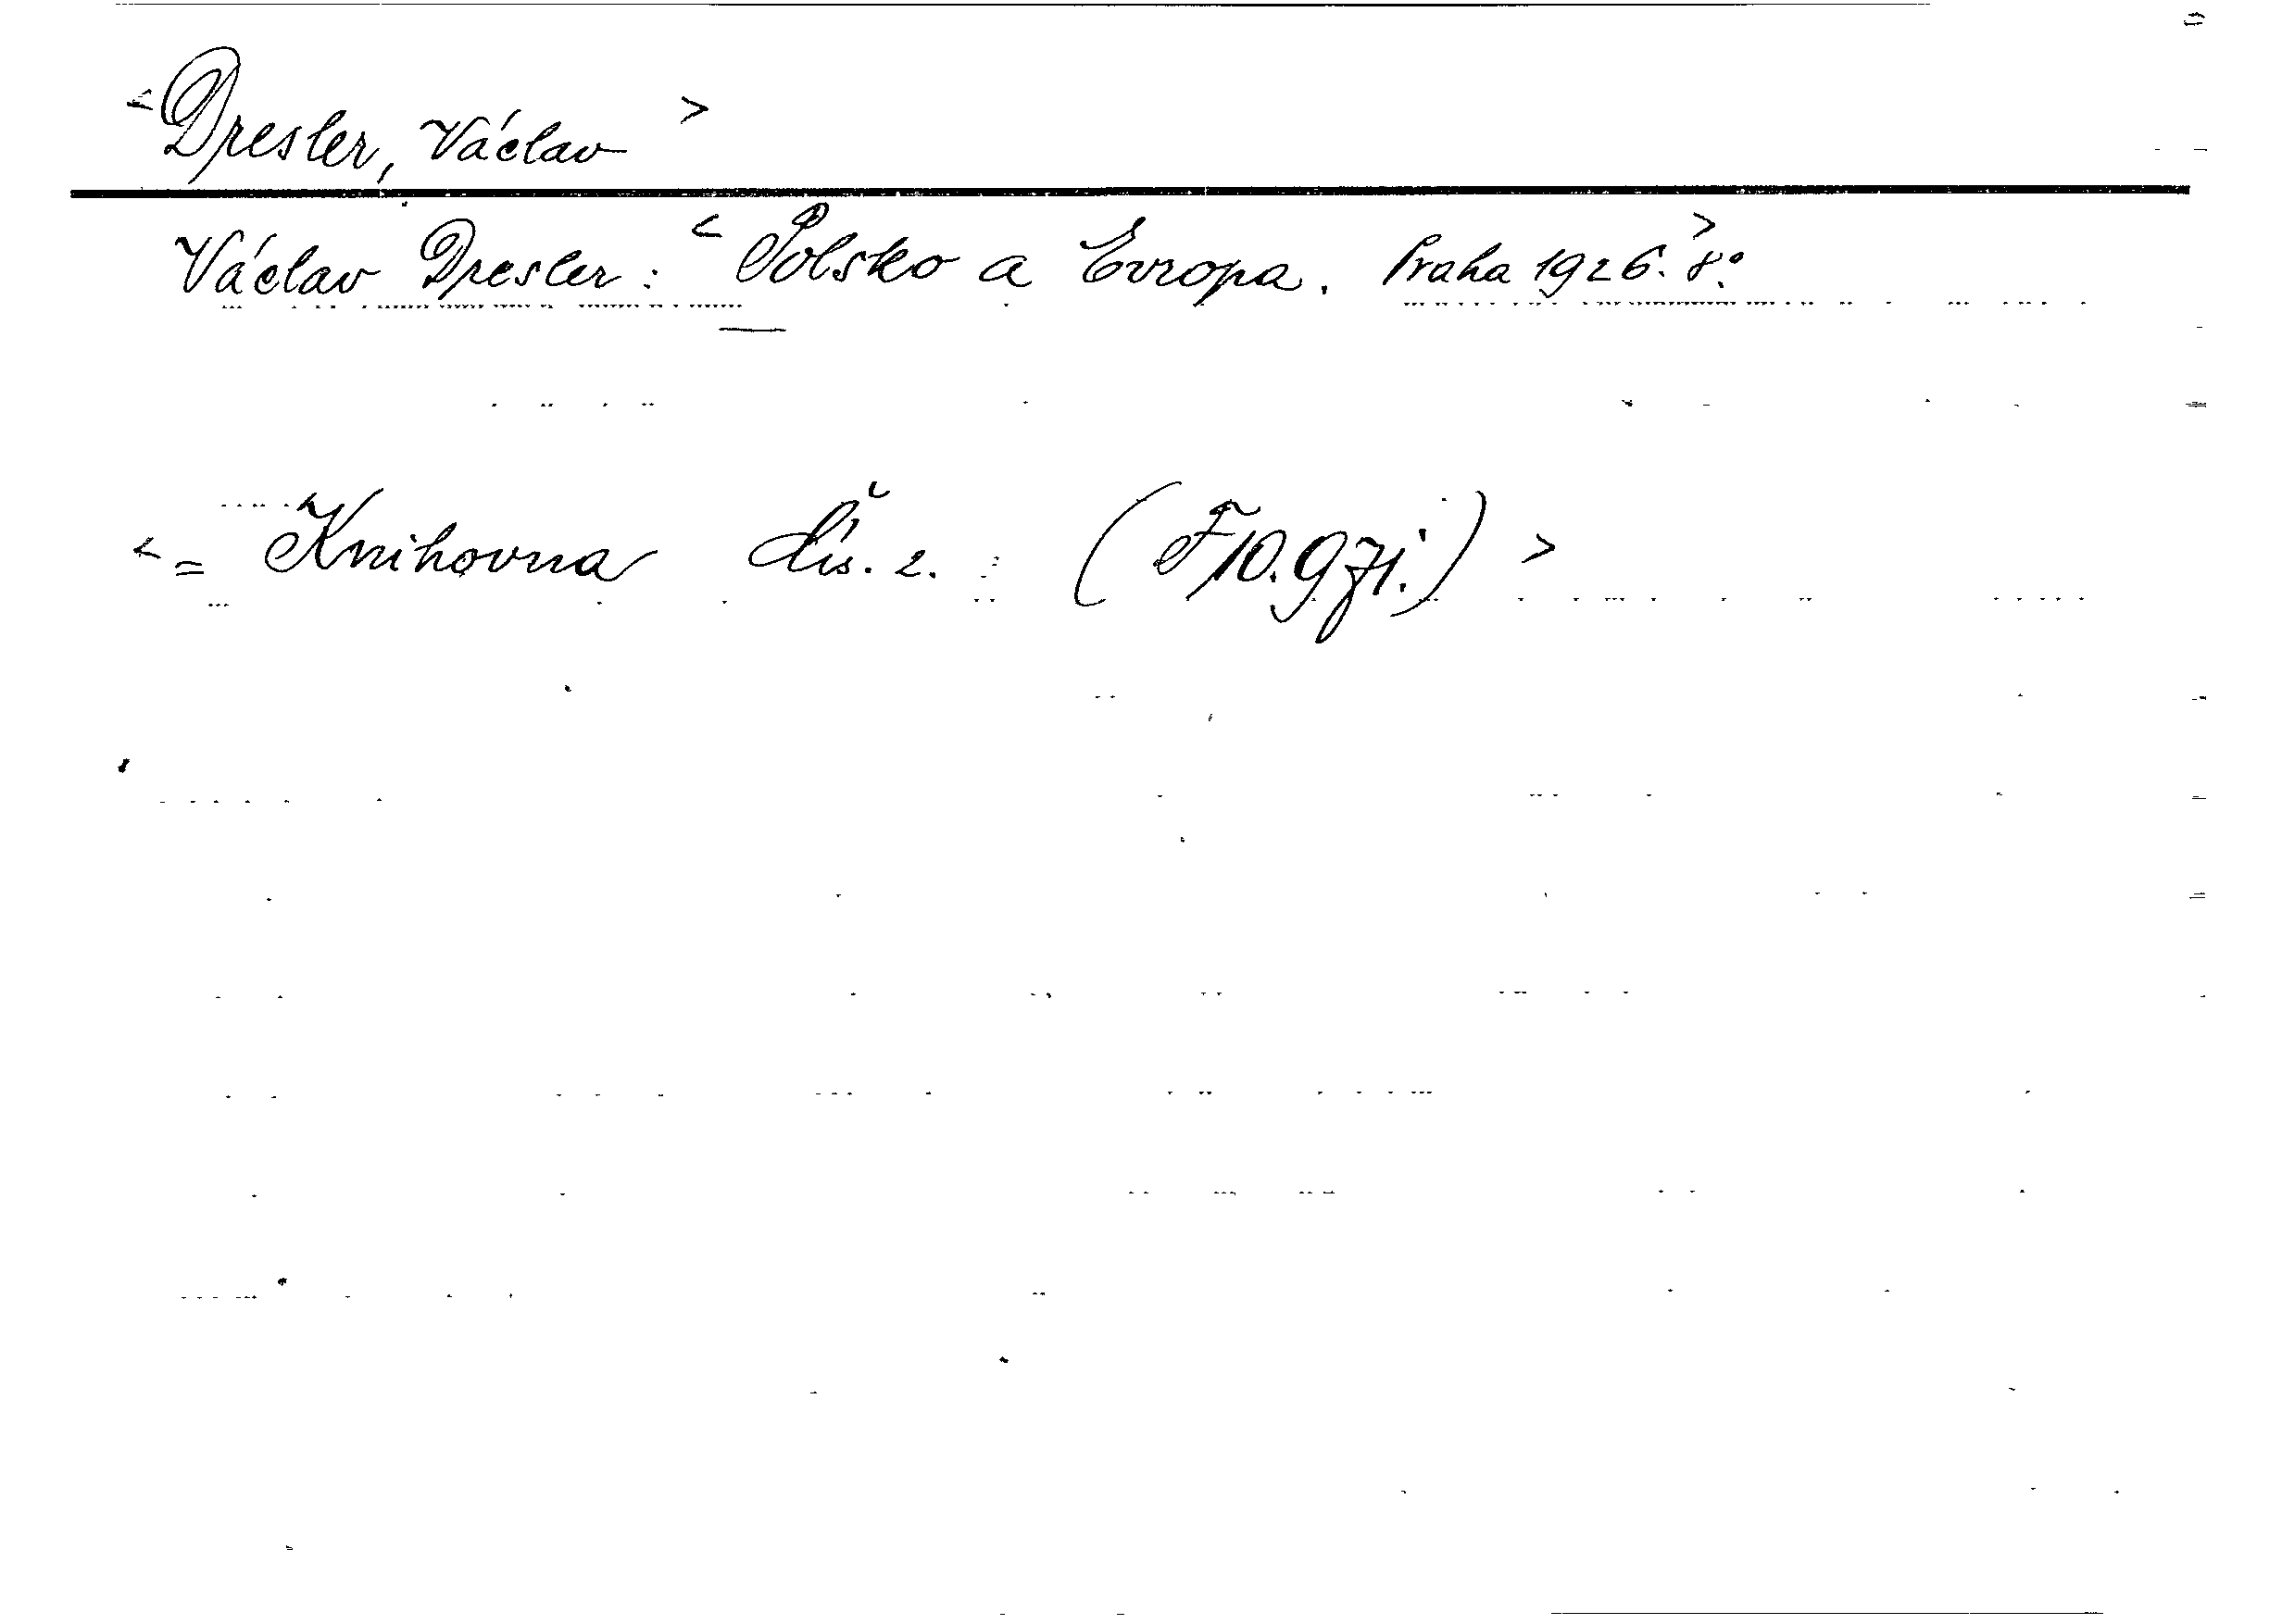 <Dresler, Václav>
Václav Dresler: <Polsko a Evropa. Praha 1926.> 8°.
<= Knihovna čís. 2. (F10.971.)>